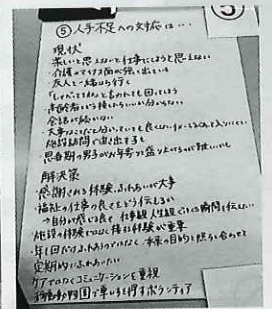 ⑤人手不足への対応は…
現状
・楽しいと思えないと仕事にしようと思えない
・介護のマイナス面が強く出ている
・友人と一緒なら行く
「しゃべってきてね」と言われても困ってしまう
・高齢者という接し方がいいか分からない
会話が続かない
・大事なことだと分かっていても良くないイメージ
施設訪問で
・思春期の男子がお年寄と盛り上がるのが難しい
解決策
・感謝される体験、ふれあいが大事
・福祉の仕事の良さをどう伝えるか
→自分が感じる良さ 仕事観人生観 瞬間を伝えたい
・施設の体験ではなく接する体験が重要
・年1回だけふれあうのではなく、本来の目的と照らし合わせて
定期的にふれあいたい
ケアではなくコミュニケーションを重視
・移動動物園で 得するボランティア
⑤